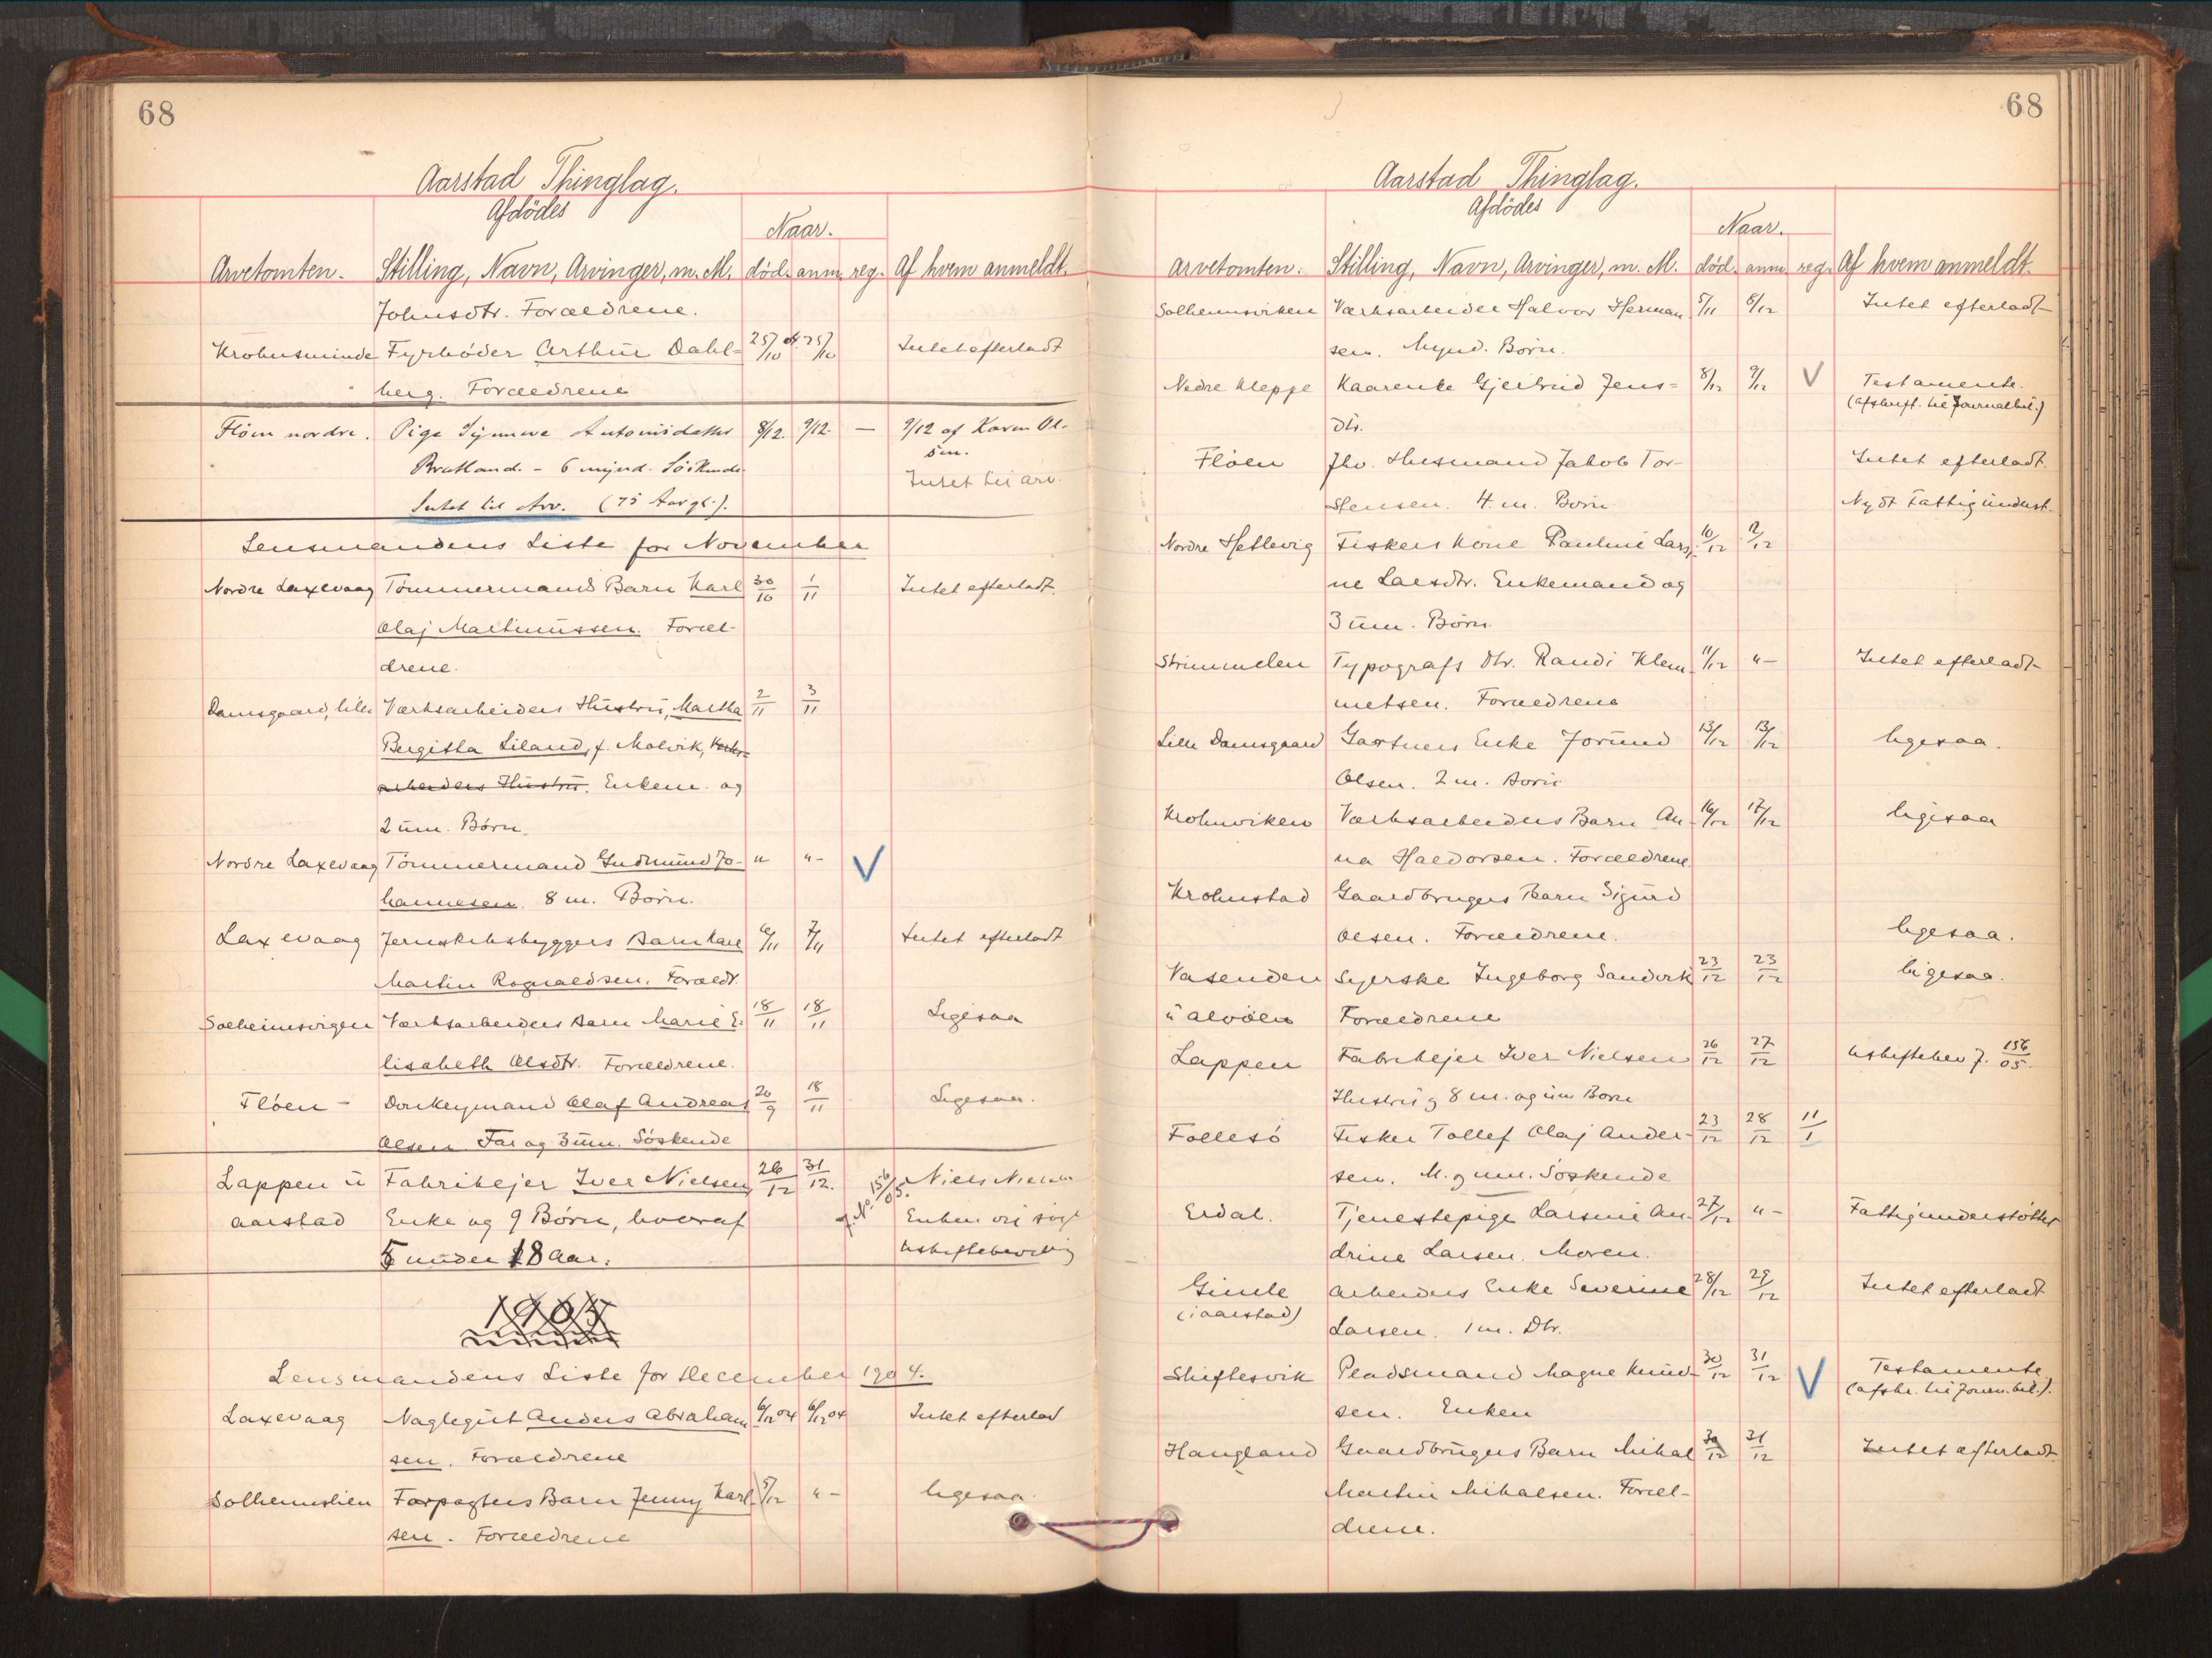 68
Aarstad Thinglag.
Afdödes
Naar.
Arvetomten. Stilling, Navn, Arvinger, m. M. död. anm. reg. Af hvem anmeldt.
Johnsdtr. Forældrene.
Krohnsminde Fyrbøder Arthur Dahl- 25/10 04 25/10 Intet efterladt
berg. Forældrene
Fløen nordre. Pige Synneve Antonisdatter 8/12. 9/12. — 9/12 af Karen Ol-
Bratland. - 6 mynd. Söskende sen.
Intet til Arv. (75 Aar gl.). Intet til arv.
Lensmandens Liste for November
Nordre Laxevaag Tømmermands Barn Karl 30/10 1/11 Intet efterladt.
Olaj Martinussen. Foræl-
drene.
Damsgaard, lille Værksarbeiders Hustru, Martha 2/11 3/11
Bergitta Liland, f. Malvik, Værks-
arbeiders Hustru. Enkem. og
2 um. Børn.
Nordre Laxevaag Tømmermand Gudmund Jo- " "- V
hannesen. 8 m. Børn.
Laxevaag Jernskibsbyggers Barn Karl 6/11 7/11 Intet efterladt
Martin Rognaldsen. Foræld.
Solheimsvigen Værksarbeiders Barn Marie E- 18/11 18/11 Ligesaa
lisabeth Olsdtr. Forældrene.
Fløen - Donkeymand Olaf Andreas 20/9 18/11 Ligesaa.
Olsen Far og 3 um. Søskende
Lappen i Fabrikejer Iver Nielsen 26/12 31/12. J. No. 156/05. Niels Nielsen
Aarstad Enke og 9 Børn, hvoraf Enken vil søge
5 under 18 Aar. uskiftebevilling
1905
Lensmandens Liste for December 1904.
Laxevaag Naglegut Anders Abraham 6/12 04 6/12 04 Intet efterlad
sen. Forældrene
Solheimslien Forpagters Barn Jenny Karl- 5/12 "- ligesaa
sen. Forældrene
68
Aarstad Thinglag.
Afdödes
Naar.
Arvetomten. Stilling, Navn, Arvinger, m. M. död. anm. reg. Af hvem anmeldt.
Solheimsviken Værksarbeider Halvor Herman 5/11 8/12 Intet efterladt
sen. Mynd. Børn.
Nedre Kleppe Kaarenke Gjertrud Jens- 8/12 9/12 V Testamente.
(Afskrift. til Journalbil.)
dtr.
Fløen Fhv. Husmand Jakob Tor- Intet efterladt.
stensen. 4. m. Børn Nydt Fattigunderst.
Nordre Hetlevig Fiskers Kone Pauline Lars- 10/12 12/12
ne Larsdtr. Enkemand og
3 um. Børn
Strimmelen Typografs Dtr. Randi Klem- 11/12 "- Intet efterladt
metsen. Forældrene
Lille Damsgaard Gartners Enke Jorund 13/12 13/12 ligesaa.
Olsen. 2 m. Børn
Krohnviken Værksarbeiders Barn An- 16/12 17/12 ligesaa
na Haldorsen. Forældrene.
Krohnstad Gaardbrugers Barn Sigurd
Olsen. Forældrene. ligesaa.
Vasenden Syerske Ingeborg Sandvik 23/12 23/12 ligesaa.
i Alvøen Forældrene
Lappen Fabrikejer Iver Nielsen 26/12 27/12 Uskiftebev J. 156/05.
Hustru & 8 m. og um Børn
Follesö Fisker Tollef Olaj Ander- 23/12 28/12 11/1
sen. M. & um. Søskende
Erdal. Tjenestepige Larsine An- 27/12 "- Fattigunderstøttet
drine Larsen. Moren.
Gimle Arbeiders Enke Severine 28/12 29/12 Intet efterladt
(i Aarstad) Larsen. 1 m. Dtr.
Skiftesvik Pladsmand Magne Knud- 30/12 31/12 V Testamente
(afskr. til Journ. bil.).
sen. Enken
Haugland Gaardbrugers Barn Mikal 30/12 31/12 Intet efterladt
Martin Mikalsen. Foræl-
drene.